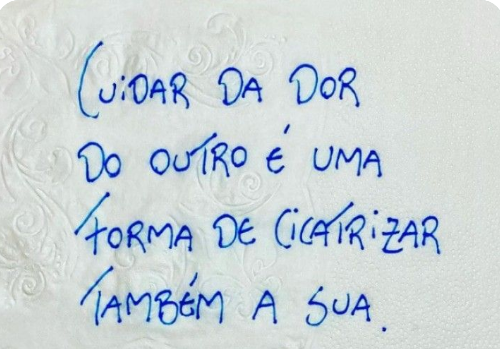 CUiDAR DA DOR
DO OUTRO É UMA
FORMA DE CiCATRiZAR
TAMBÉM A SUA.